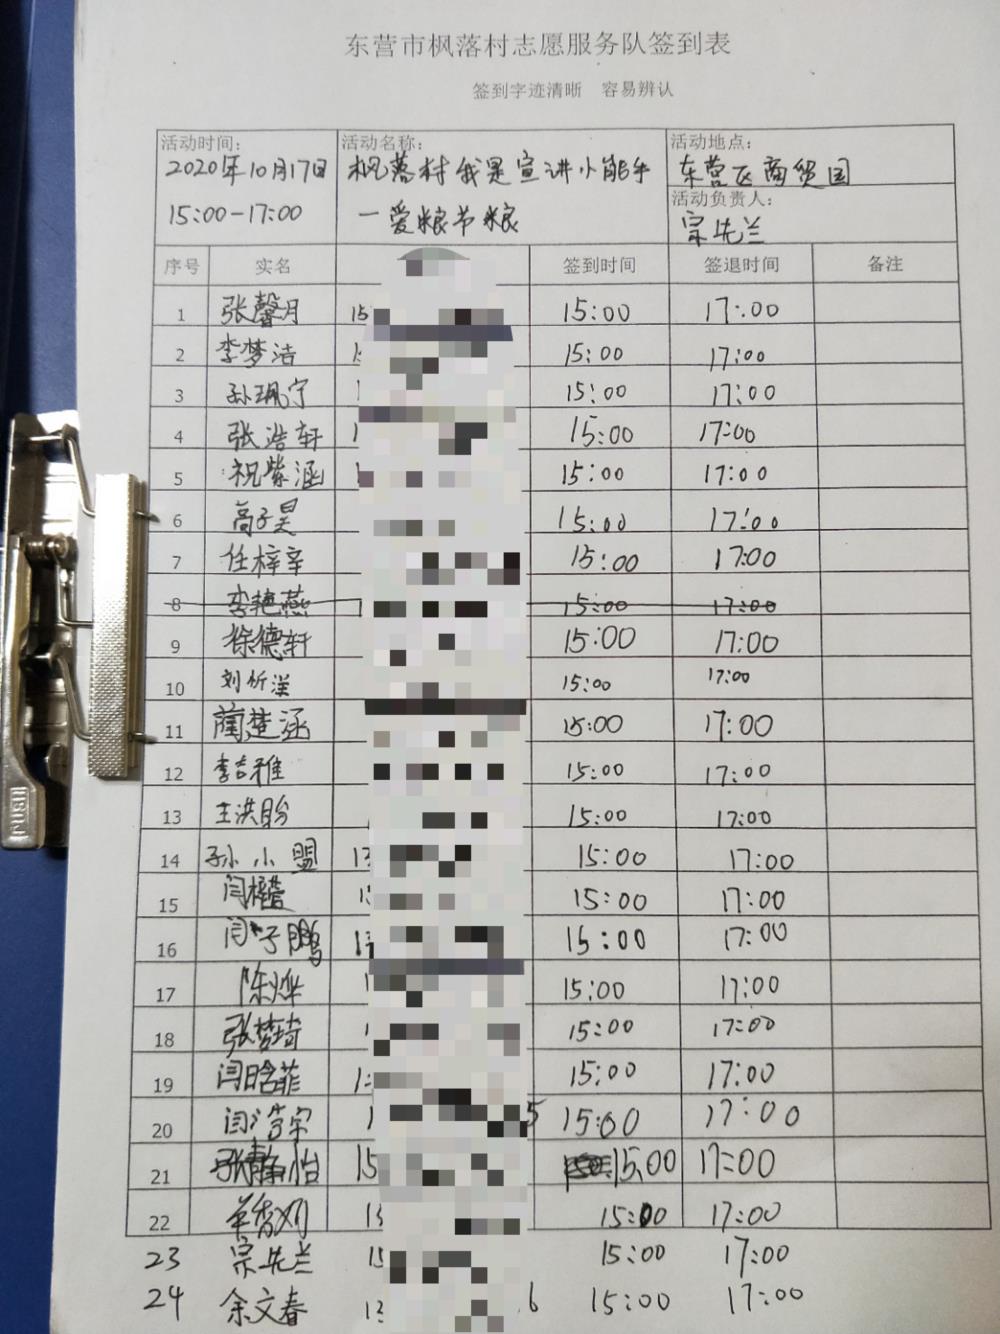 东营市枫落村志愿服务队签到表
签到字迹清晰 容易辨认
活动时间: 活动名称: 活动地点:
2020年10月17日 枫落村我是宣讲小能手 东营区商贸园
15:00-17:00 —爱粮节粮 活动负责人:
宗先兰
序号 实名 签到时间 签退时间 备注
1 张馨月 15 15:00 17:00
2 李梦洁 15:00 17:00
3 孙珮宁 15:00 17:00
4 张浩轩 15:00 17:00
5 祝紫涵 15:00 17:00
6 高子昊 15:00 17:00
7 任梓辛 15:00 17:00
8 李艳燕 15:00 17:00
9 徐德轩 15:00 17:00
10 刘忻洋 15:00 17:00
11 蔺楚涵 15:00 17:00
12 李吉雅 15:00 17:00
13 王洪盼 15:00 17:00
14 孙小盟 15:00 17:00
15 闫 15:00 17:00
16 闫子鹏 15:00 17:00
17 陈烨 15:00 17:00
18 张梦琦 15:00 17:00
19 闫晗菲 15:00 17:00
20 闫浩宇 5 15:00 17:00
21 张静怡 15 15:00 17:00
22 15:00 17:00
23 宗先兰 15 15:00 17:00
24 余文春 6 15:00 17:00
PUSH